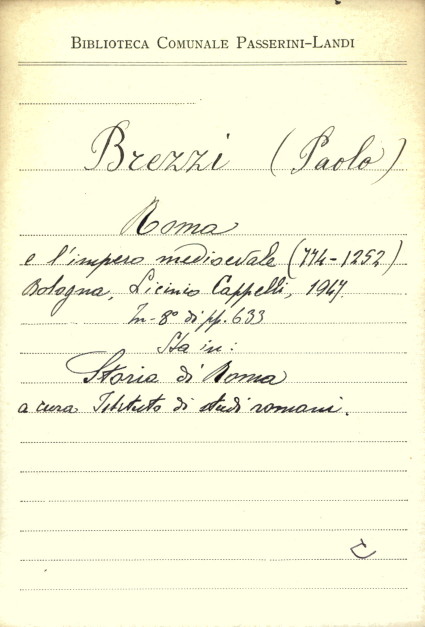 BIBLIOTECA COMUNALE PASSERINI-LANDI
Brezzi (Paolo)
Roma
e l'impero medioevale (774-1252)
Bologna, Licinio Cappelli, 1947.
In-8° di pp. 633
Sta in:
Storia di Roma
a cura Istituto di studi romani.